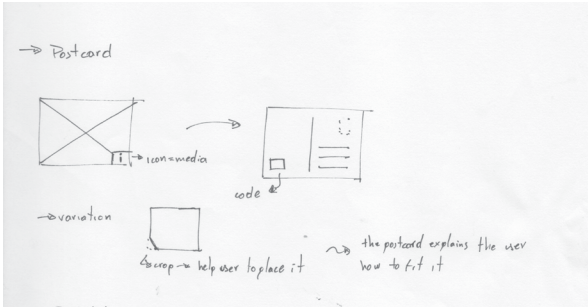 → Postcard
i → icon = media
code
→ variation
↳ crop → help user to place it
~> the postcard explains the user
how to fit it